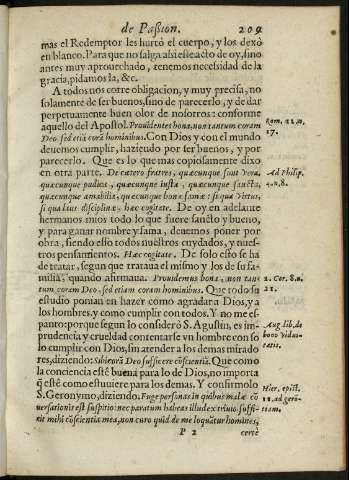 de Passion. 209
mas el Redemptor les hurtó el cuerpo, y los dexò
en blanco. Para que no salga assi este acto de oy, sino
antes muy aprouechado, tenemos necesidad de la
gracia, pidamosla, &c.
A todos nos corre obligacion, y muy precisa, no
solamente de ser buenos, sino de parecerlo, y de dar
perpetuamente buen olor de nosotros: conforme
aquello del Apostol. Prouidentes bona, non tantum coram
Rom. 12. n.
17.
Deo sed etiā corā hominibus. Con Dios y con el mundo
deuemos cumplir, haziendo por ser buenos, y por
parecerlo. Que es lo que mas copiosamente dixo
en otra parte. De cætero fratres, quæcunque sunt vera,
Ad Philip.
4. n. 8.
quæcunque pudica, quæcunque iusta, quæcunque sancta,
quæcunque amabilia, quæcunque bonæ famæ: si qua virtus,
si qua laus disciplinæ, hæc cogitate. De oy en adelante
hermanos mios todo lo que fuere sancto y bueno,
y para ganar nombre y fama, deuemos poner por
obra, siendo esso todos nuestros cuydados, y nues-
tros pensamientos. Hæc cogitate. De solo esto se ha
de tratar, segun que trataua el mismo y los de su fa-
milia, quando afirmaua. Prouidemus bona, non tan-
2. Cor. 8. n.
21.
tum coram Deo, sed etiam coram hominibus. Que todo su
estudio ponian en hazer como agradar a Dios, y a
los hombres, y como cumplir con todos. Y no me es-
panto: porque segun lo considerò S. Agustin, es im-
Aug lib. de
bono vidui-
tatis.
prudencia y crueldad contentarse vn hombre con so
lo cumplir con Dios, sin atender a los demas mirado
res, diziendo: Sibi corā Deo sufficere cōscientiā. Que como
la conciencia estè buena para lo de Dios, no importa
q̃ estè como estuuiere para los demas. Y confirmolo
S. Geronymo, diziendo. Fuge personas in quibus malæ cō
Hier. epist.
ad gerō-
tiam.
uersationis est suspitio: nec paratum habeas illud ex triuio: suffi-
cit mihi cōscientia mea, non curo quid de me loquātur homines,
P 2 certè